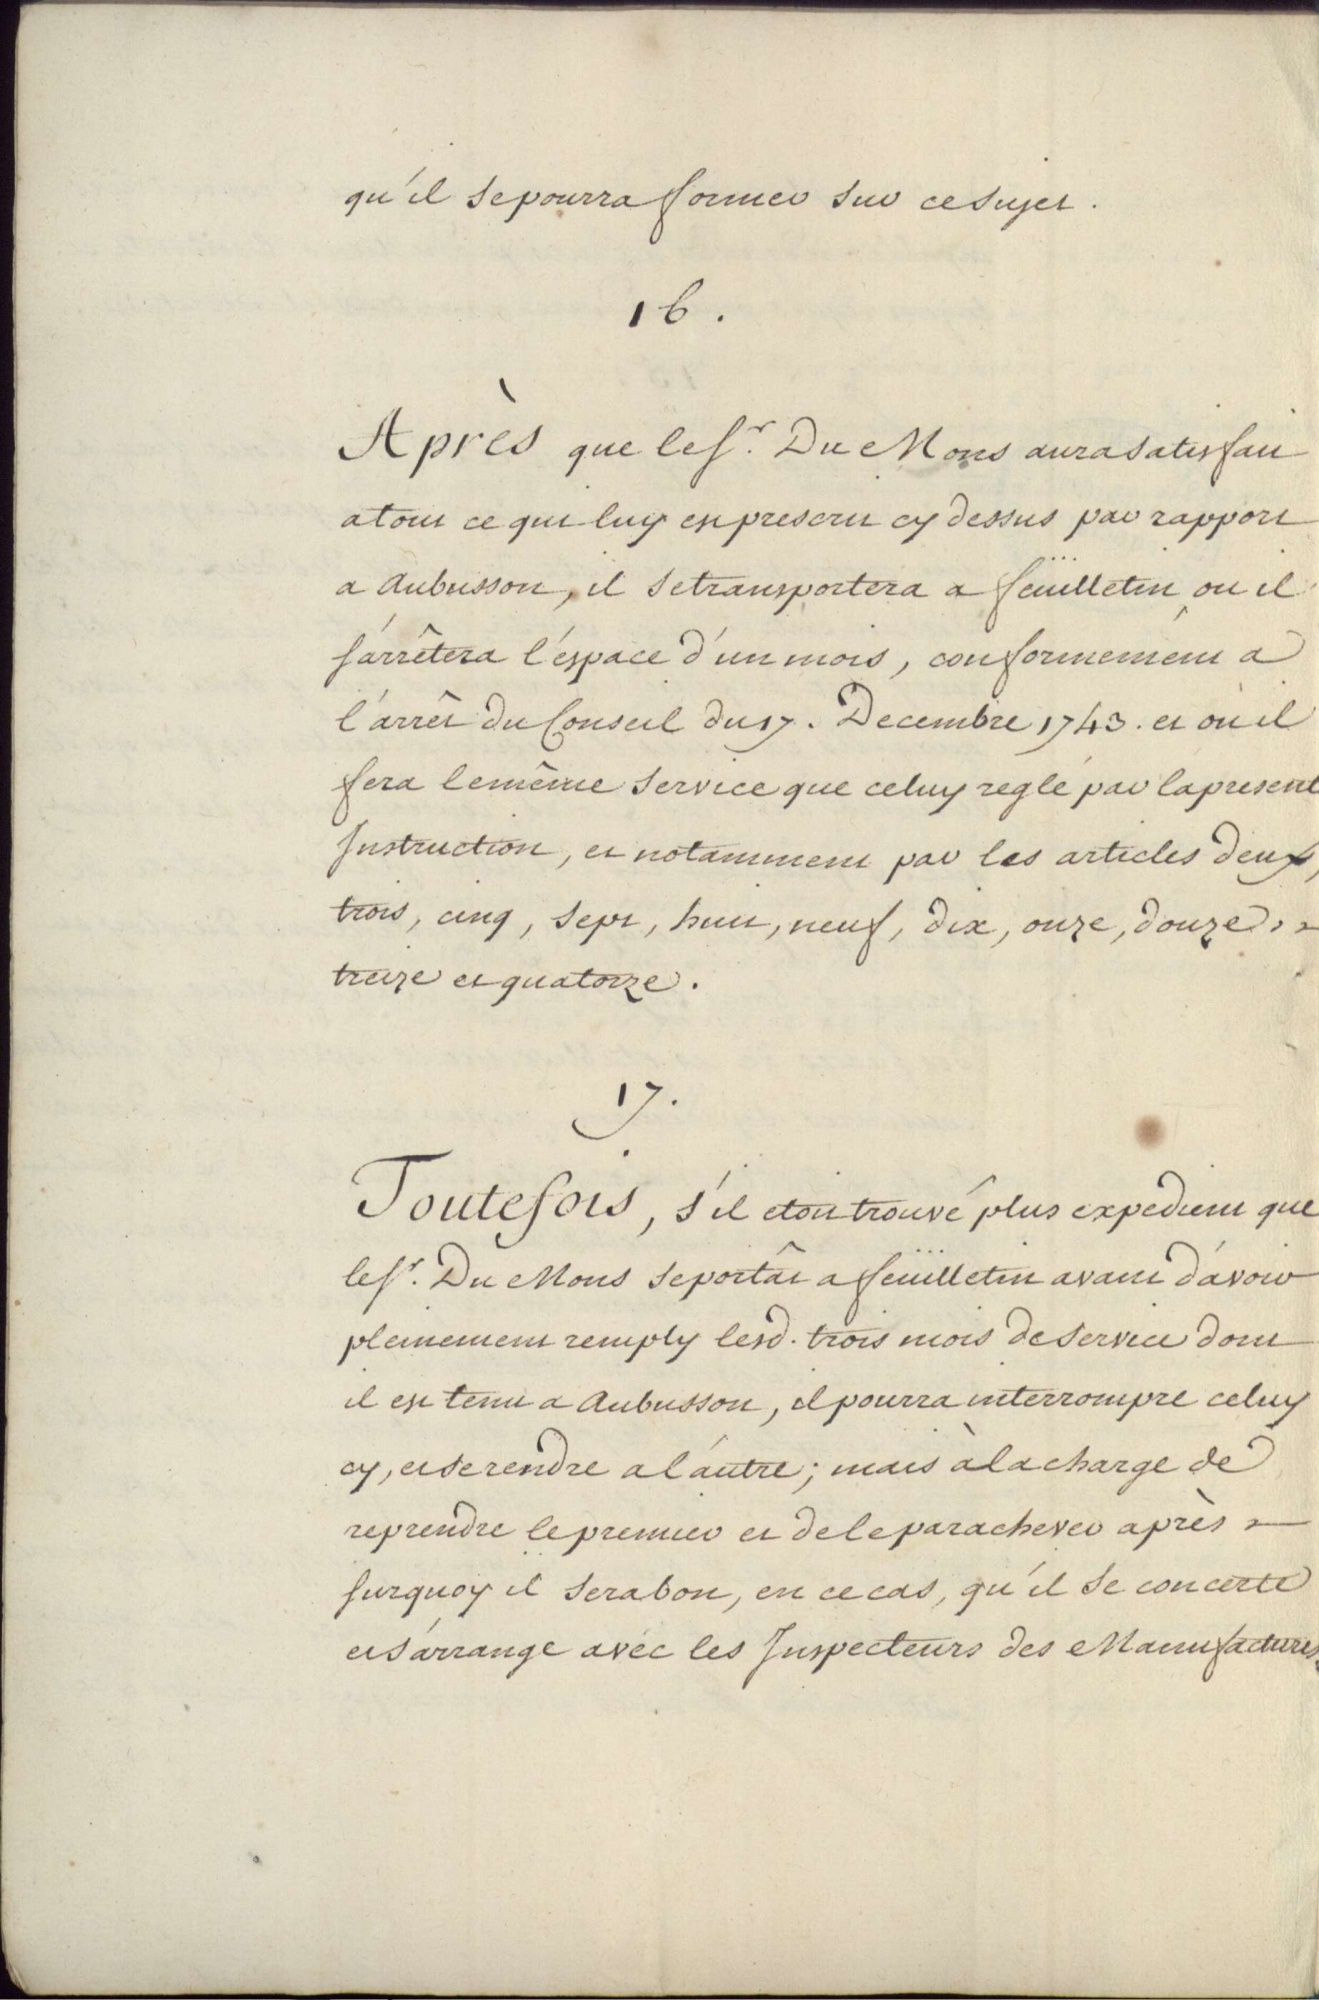 qu'il se pourra former sur ce sujet.
16.
Après que le Sr. Du Mons aura satisfait
a tout ce qui luy est prescrit cy dessus par rapport
a Aubusson, il se transportera a feüilletin ou il
s'arrêtera l'éspace d'un mois, conformément a
l'arrêt du Conseil du 17. Decembre 1743. et où il
fera le même service que celuy reglé par la present
Instruction, et notamment par les articles deux,
trois, cinq, sept, huit, neuf, dix, onze, douze,
treize et quatorze.
17.
Toutefois, s'il etoit trouvé plus expedient que
le Sr. Du Mons se portât a feüilletin avant d'avoir
pleinement remply lesd. trois mois de service dont
il est tenu a Aubusson, il pourra interrompre celuy
cy, et se rendre a l'autre; mais à la charge de
reprendre le premier et de le parachever après
surquoy il sera bon, en ce cas, qu'il se concerte
et s'arrange avec les Inspecteurs des Manufactures